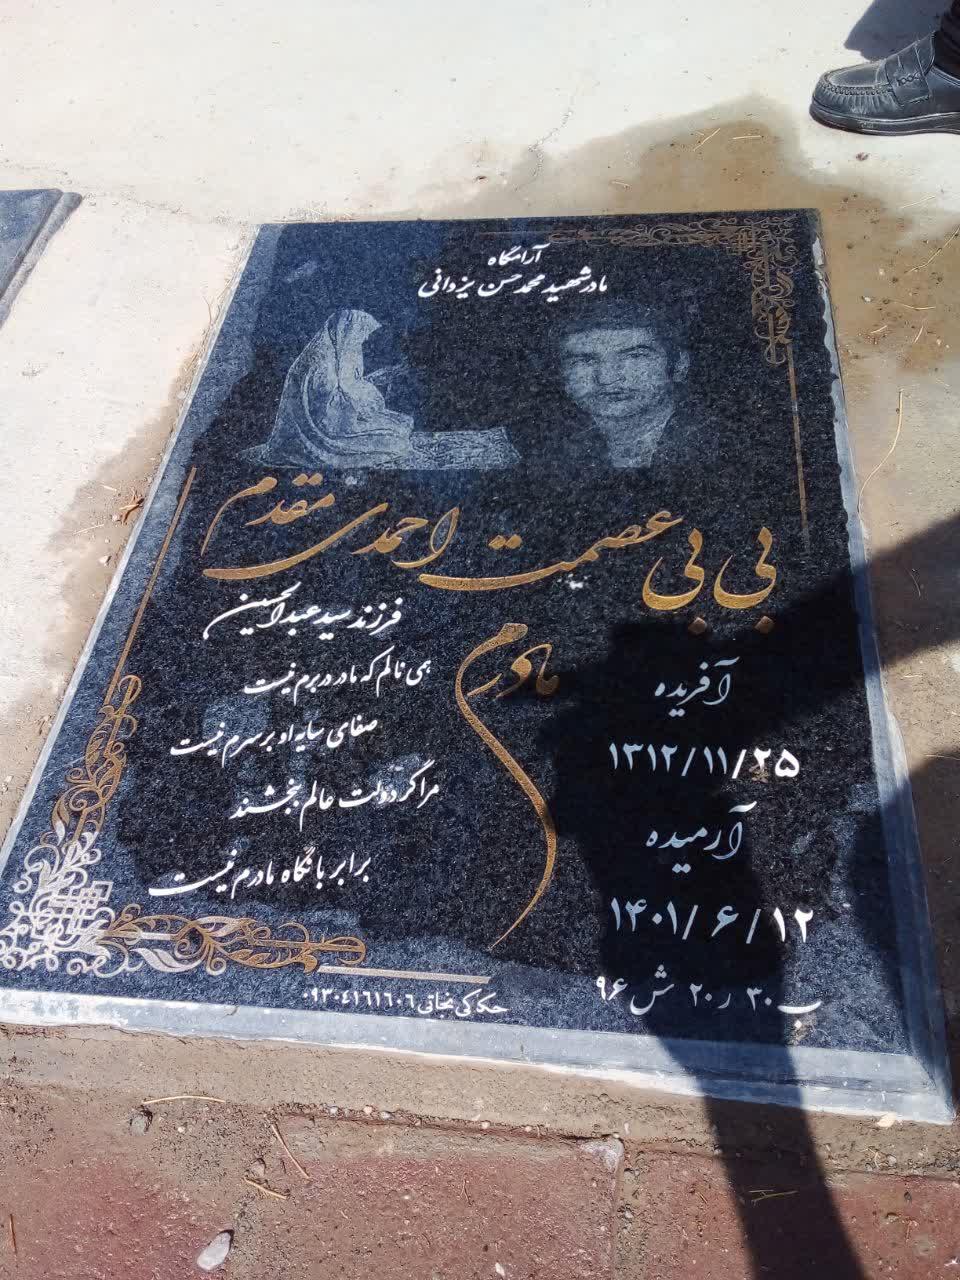 آرامگاه
مادر شهید محمد حسن یزدانی
بی بی عصمت احمدی مقدم
فرزند سید عبدالحسین
مادرم
همی نالم که مادر در برم نیست
صفای سایه او بر سرم نیست
مرا گر دولت عالم ببخشند
برابر با نگاه مادرم نیست
آفریده
۱۳۱۲/۱۱/۲۵
آرمیده
۱۴۰۱/۶/۱۲
ب ۳۰ ر ۲۰ ش ۹۶
حکاکی نجاتی ۰۹۳۰۴۱۶۱۶۰۶